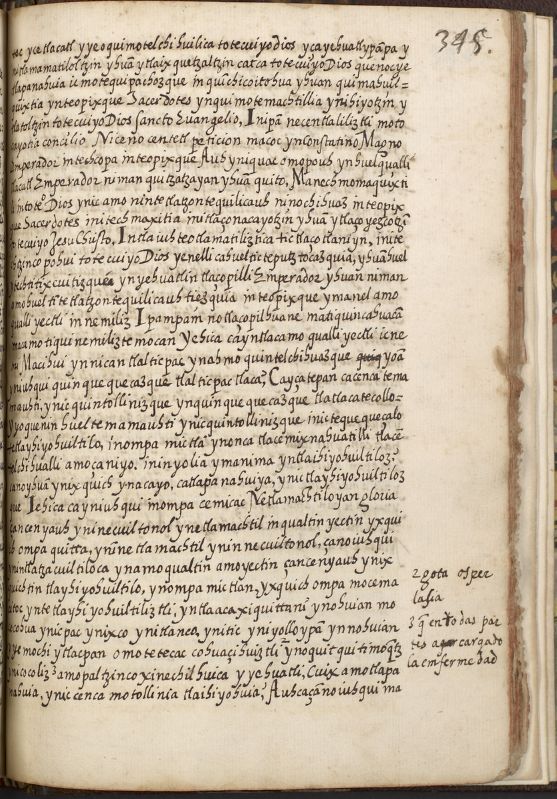 345.
yce tlacatl yyeo quimotelchihuilica totecuiyo dios ycayehuatl ypãpa y
mamatiloltzin yhuã ytlaix quetzaltzin catca totecuiyo Dios quenocye
tlapanahuia ic motequipachozque in quichicoitohua yhuan quimahuil=
quixtia ynteopixque Sacerdotes ynqui motemachtillia ynihiyotzin y
tlatoltzin totecuiyo Dios sancto Euangelio, Inipã necentlaliliztli moto
cayotia concilio Niceno centetl peticion macoc ynConstatino Magno
Emperador intechcopa inteopixque Auh yniquac omopouh ynhuel qualli
tlacatl Emperador niman quitzatzayan yhuã quito, Manechmomaquixti
in totecº Dios ynic amo nintetlatzontequilicauh ninochihuaz inteopix
que Sacerdotes initech maxitia initlaçonacayotzin yhuã ytlaçoyezçotzin
totecuiyo Jesu Christo, Intlaiuh teotlamatiliztica tictlaçotlaniyn, inite
tzinco pohui totecuiyo Dios yenelli cahuel ticteputztocazquia, yhuã huel
techtitixcuitizquia yn yehuatlin tlacopilli Emperador yhuan niman
amohuel titetlatzontequilicauh tiezquia inteopixque ymanel amo
qualli yectli innemiliz Ipampain notlacopilhuane matiquincahuacã
macamo tiquinemiliztemocan Yehica cayntlacamo qualli yectli icne
mi Macihui ynnican tlalticpac ynahmo quintelchihuazque yoã
yniuhqui quinquequecazque tlalticpac tlaca, Caçatepan cacenca tema
mauhti, ynic quintollinizque ynquinquequecazque tlatlacatecollo=
Yyoquenin huel temamauhti ynicquintollinizque inictequequeçalo
tetlayhiyohuiltilo, inompa mictlã ynonca tlacemixnahuatilli tlacẽ
telchihualli amocaniyo. ininyolia ymanima yntlaihiyohuiltiloz,
canoyhuan yxquich ynacayo, catlapanahuiya, ynictlayhiyohuiltiloz
que Iehica cayniuhqui inompa cemicac Netlamachtiloyan gloria
cancenyauh yninecuiltonol ynetlamachtil inqualtin yectin yxqui
ch ompa quitta, yninetlamachtil yninnecuiltonol, canoiuhqui
yninitlatzacuiltiloca ynamoqualtin amoyectin çancenyauh ynix
quichtin tlayhiyohuiltilo, ynompa mictlan, yxquich ompa mocema
toc yntetlayhiyohuiltiliztli, yntlaacaxiquittani ynohuian mo
cocohua ynicpac ynixco ynitlanco, ynitic yniyolloypã ynnohuian
yxmochi ytlacpan omotetecac cohuaçihuiztli ynoquitquitimoqtz
ynicocoliz amopaltzinco xinechilhuica, yyehuatli, Cuix amotlapa
nahuia, ynic cenca motollinia tlaihiyohuia, Auhcaçãnoiuhqui ma
2 gota os per
lasia
3 q en todas par
tes a cargado
la enfermedad